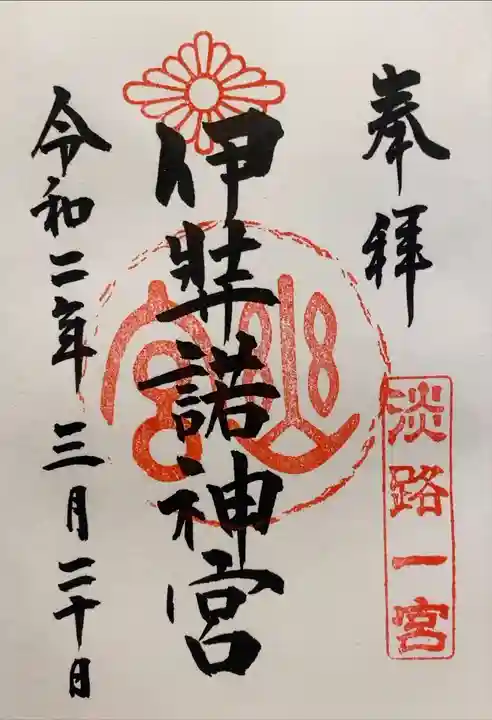 奉拝
淡路一宮
伊弉諾神宮
令和二年 三月二十日